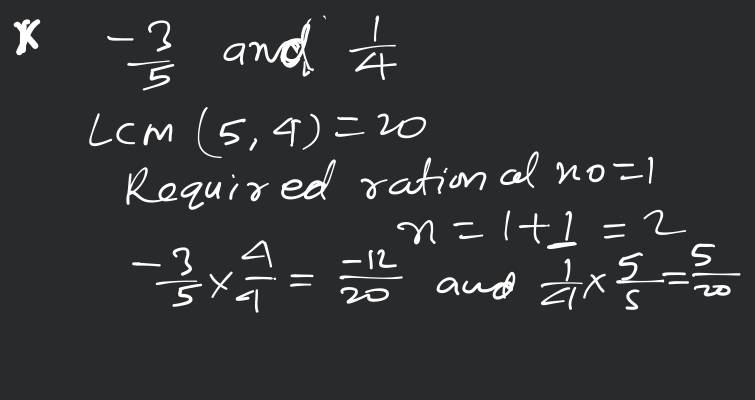 * -3/5 and 1/4
LCM (5, 4) = 20
Required rational no = 1
n = 1 + 1 = 2
-3/5 × 4/4 = -12/20 and 1/4 × 5/5 = 5/20